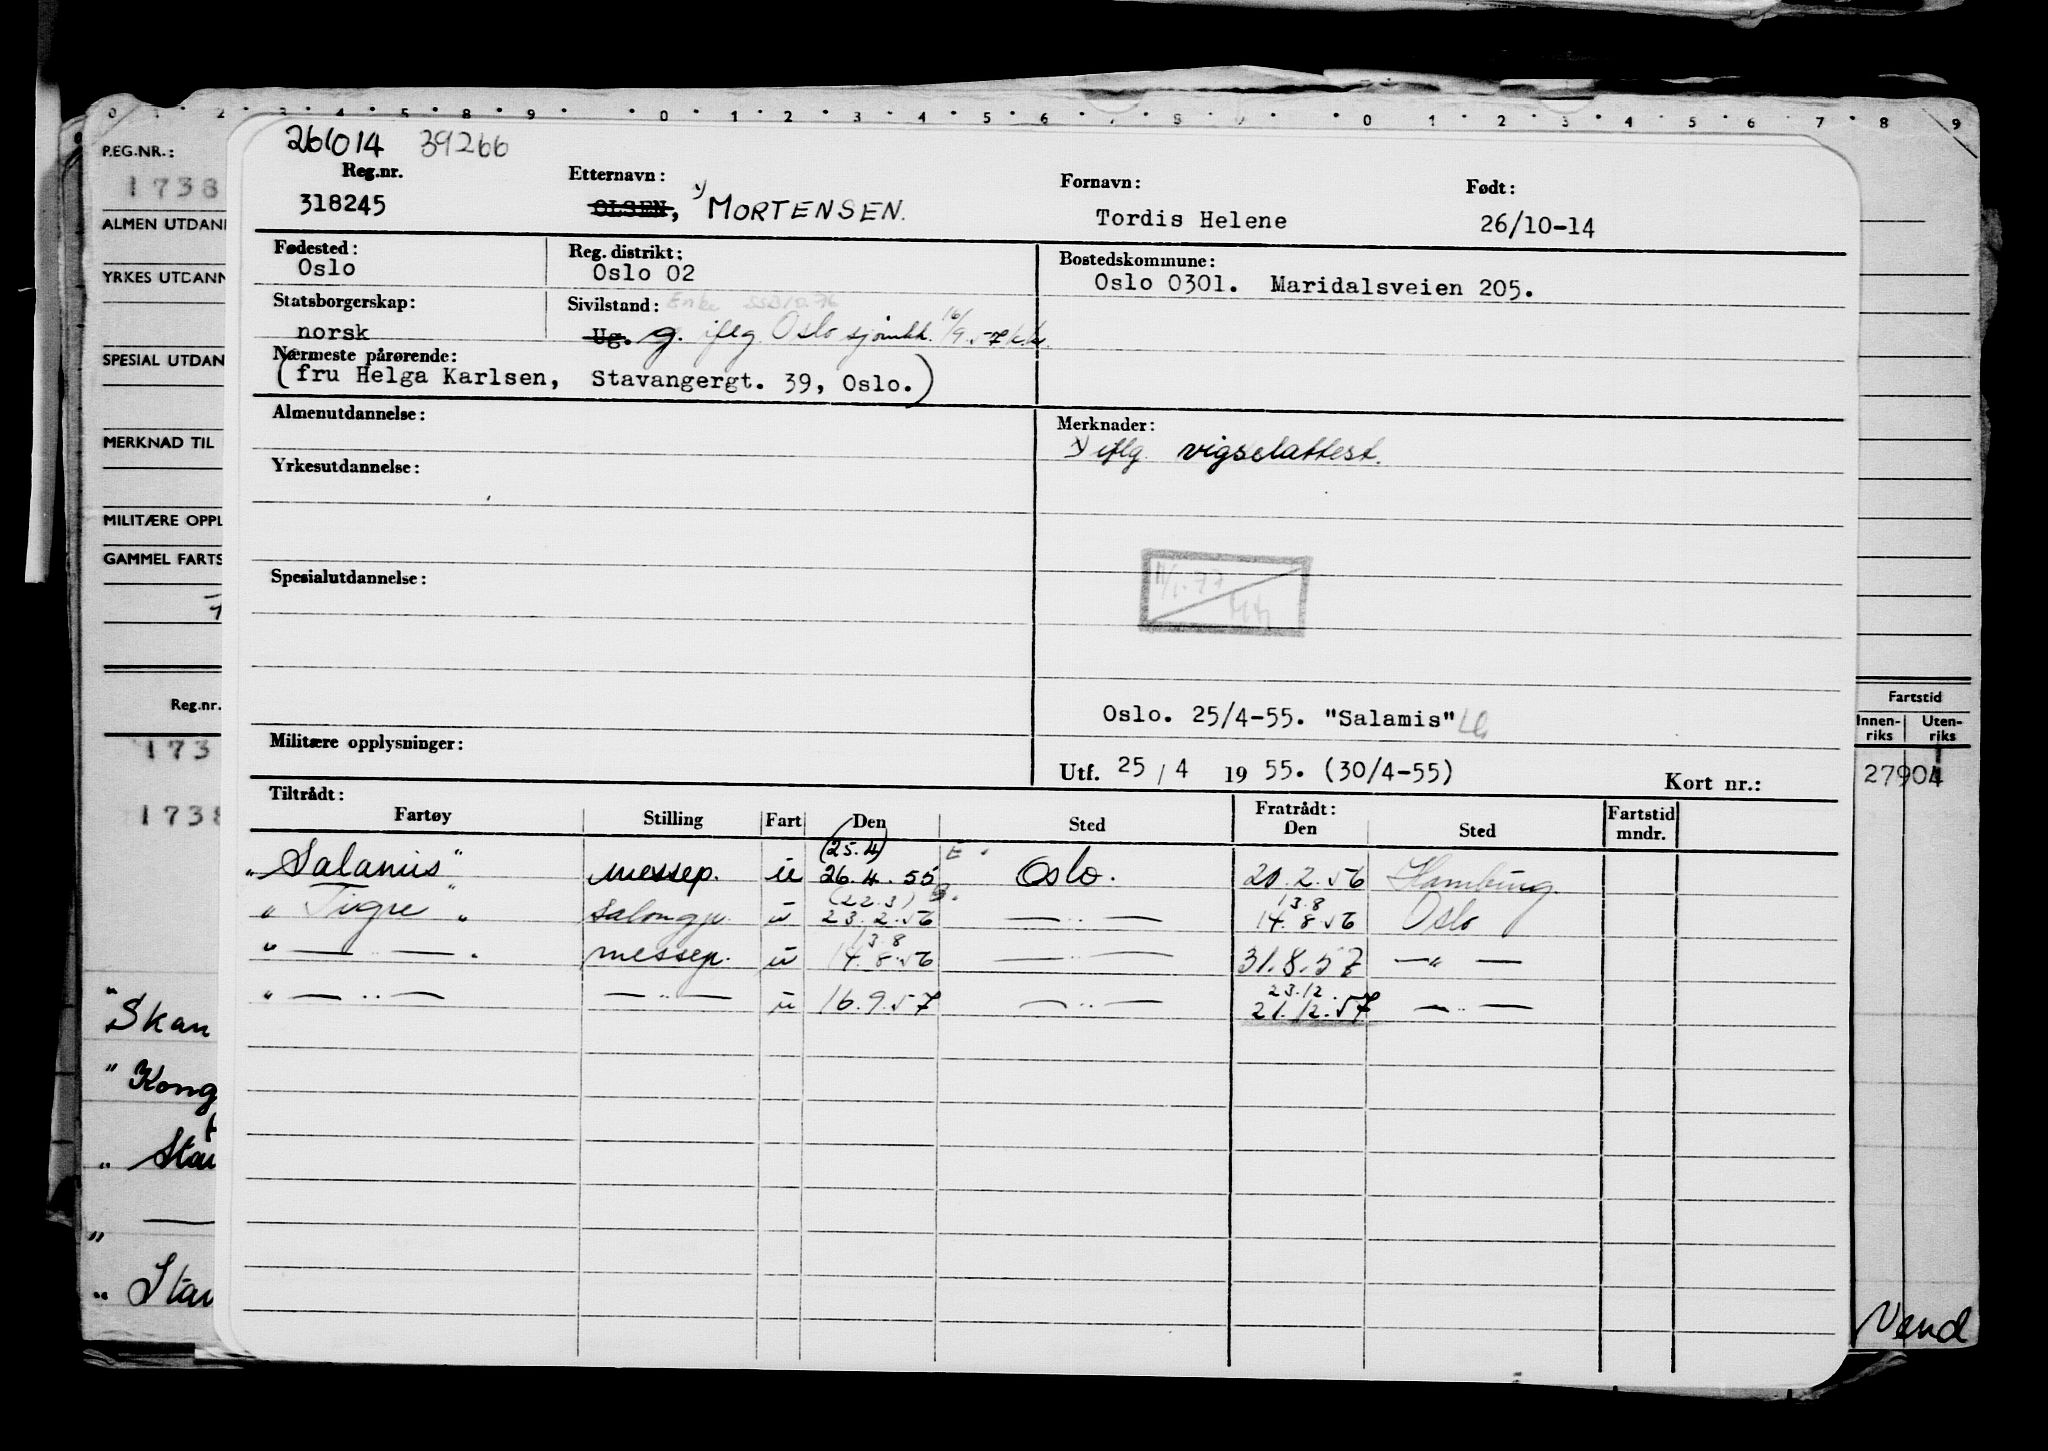 0 1 2 3 4 5 8 9 0 1 2 3 4 5 6 7 8 9 0 1 2 3 4 5 6 7 8 9
261014 39266
Reg.nr. Etternavn: Fornavn: Født:
318245 OLSEN, x) MORTENSEN. Tordis Helene 26/10-14
Fødested: Reg. distrikt: Bostedskommune:
Oslo Oslo 02 Oslo 0301. Maridalsveien 205.
Statsborgerskap: Sivilstand: Enke
norsk Ug. g. iflg. Oslo sjømktr. 16/9.57
Nærmeste pårørende:
(fru Helga Karlsen, Stavangergt. 39, Oslo.)
Almenutdannelse: Merknader:
x) iflg. vigselattest.
Yrkesutdannelse:
Spesialutdannelse:
Oslo. 25/4-55. "Salamis"
Militære opplysninger:
Utf. 25 / 4 19 55. (30/4-55) Kort nr.:
Tiltrådt: Fratrådt:
Fartøy Stilling Fart Den Sted Den Sted Fartstid mndr.
(25.4)
"Salamis" messep. u 26.4.55 Oslo. 20.2.56 Hamburg.
(22.3) 13.8
" Tigre " salongp. u 23.2.56 — " — 14.8.56 Oslo
13.8
" — " — " messep. u 14.8.56 — " — 31.8.57 — " —
23.12.
" — " — — " — u 16.9.57 — " — 21.12.57 — " —
P.EG.NR.:
1738
ALMEN UTDAN
YRKES UTDANN
SPESIAL UTDAN
MERKNAD TIL
MILITÆRE OPPL
GAMMEL FARTS
Reg.nr.
173
1738
"Skan
"Kong
" Sta
"
" Stav
Fartstid
Innen-riks Uten-riks
27904
Vend